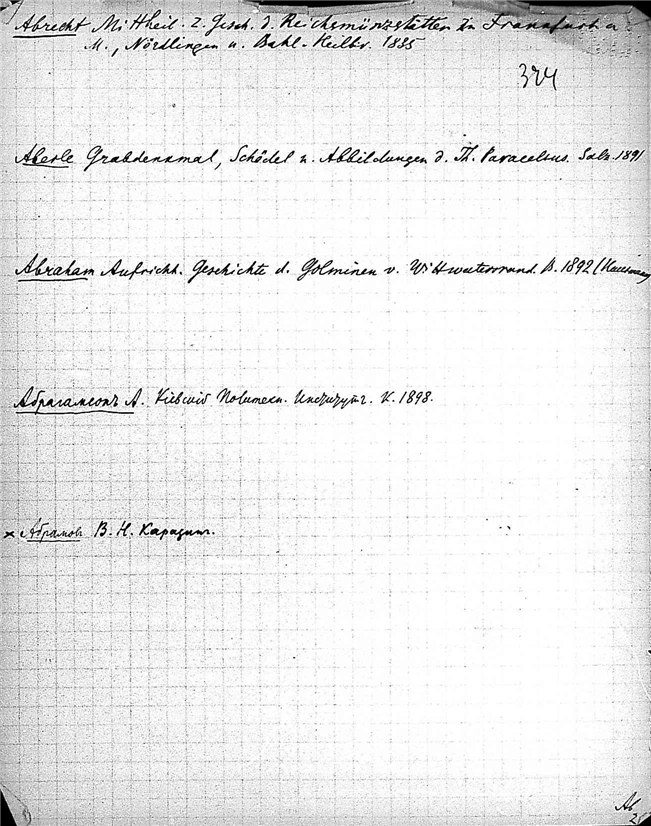 Abrecht Mittheil. z. Gesch. d. Reichsmünzstätten in Frankfurt a.
M., Nördlingen u. Heilbr. 1835
324
Aberle Grabdenkmal, Schädel u. Abbildungen d. Th. Paracelsus. Salz. 1891
Abraham Geschichte d. Golminen v. Wittwatersrand. B. 1892
Абрагамсонъ А. Кіевскій Политехн. Институтъ. К. 1898.
× Абрамовъ В. Н. Каразинъ.
Ab